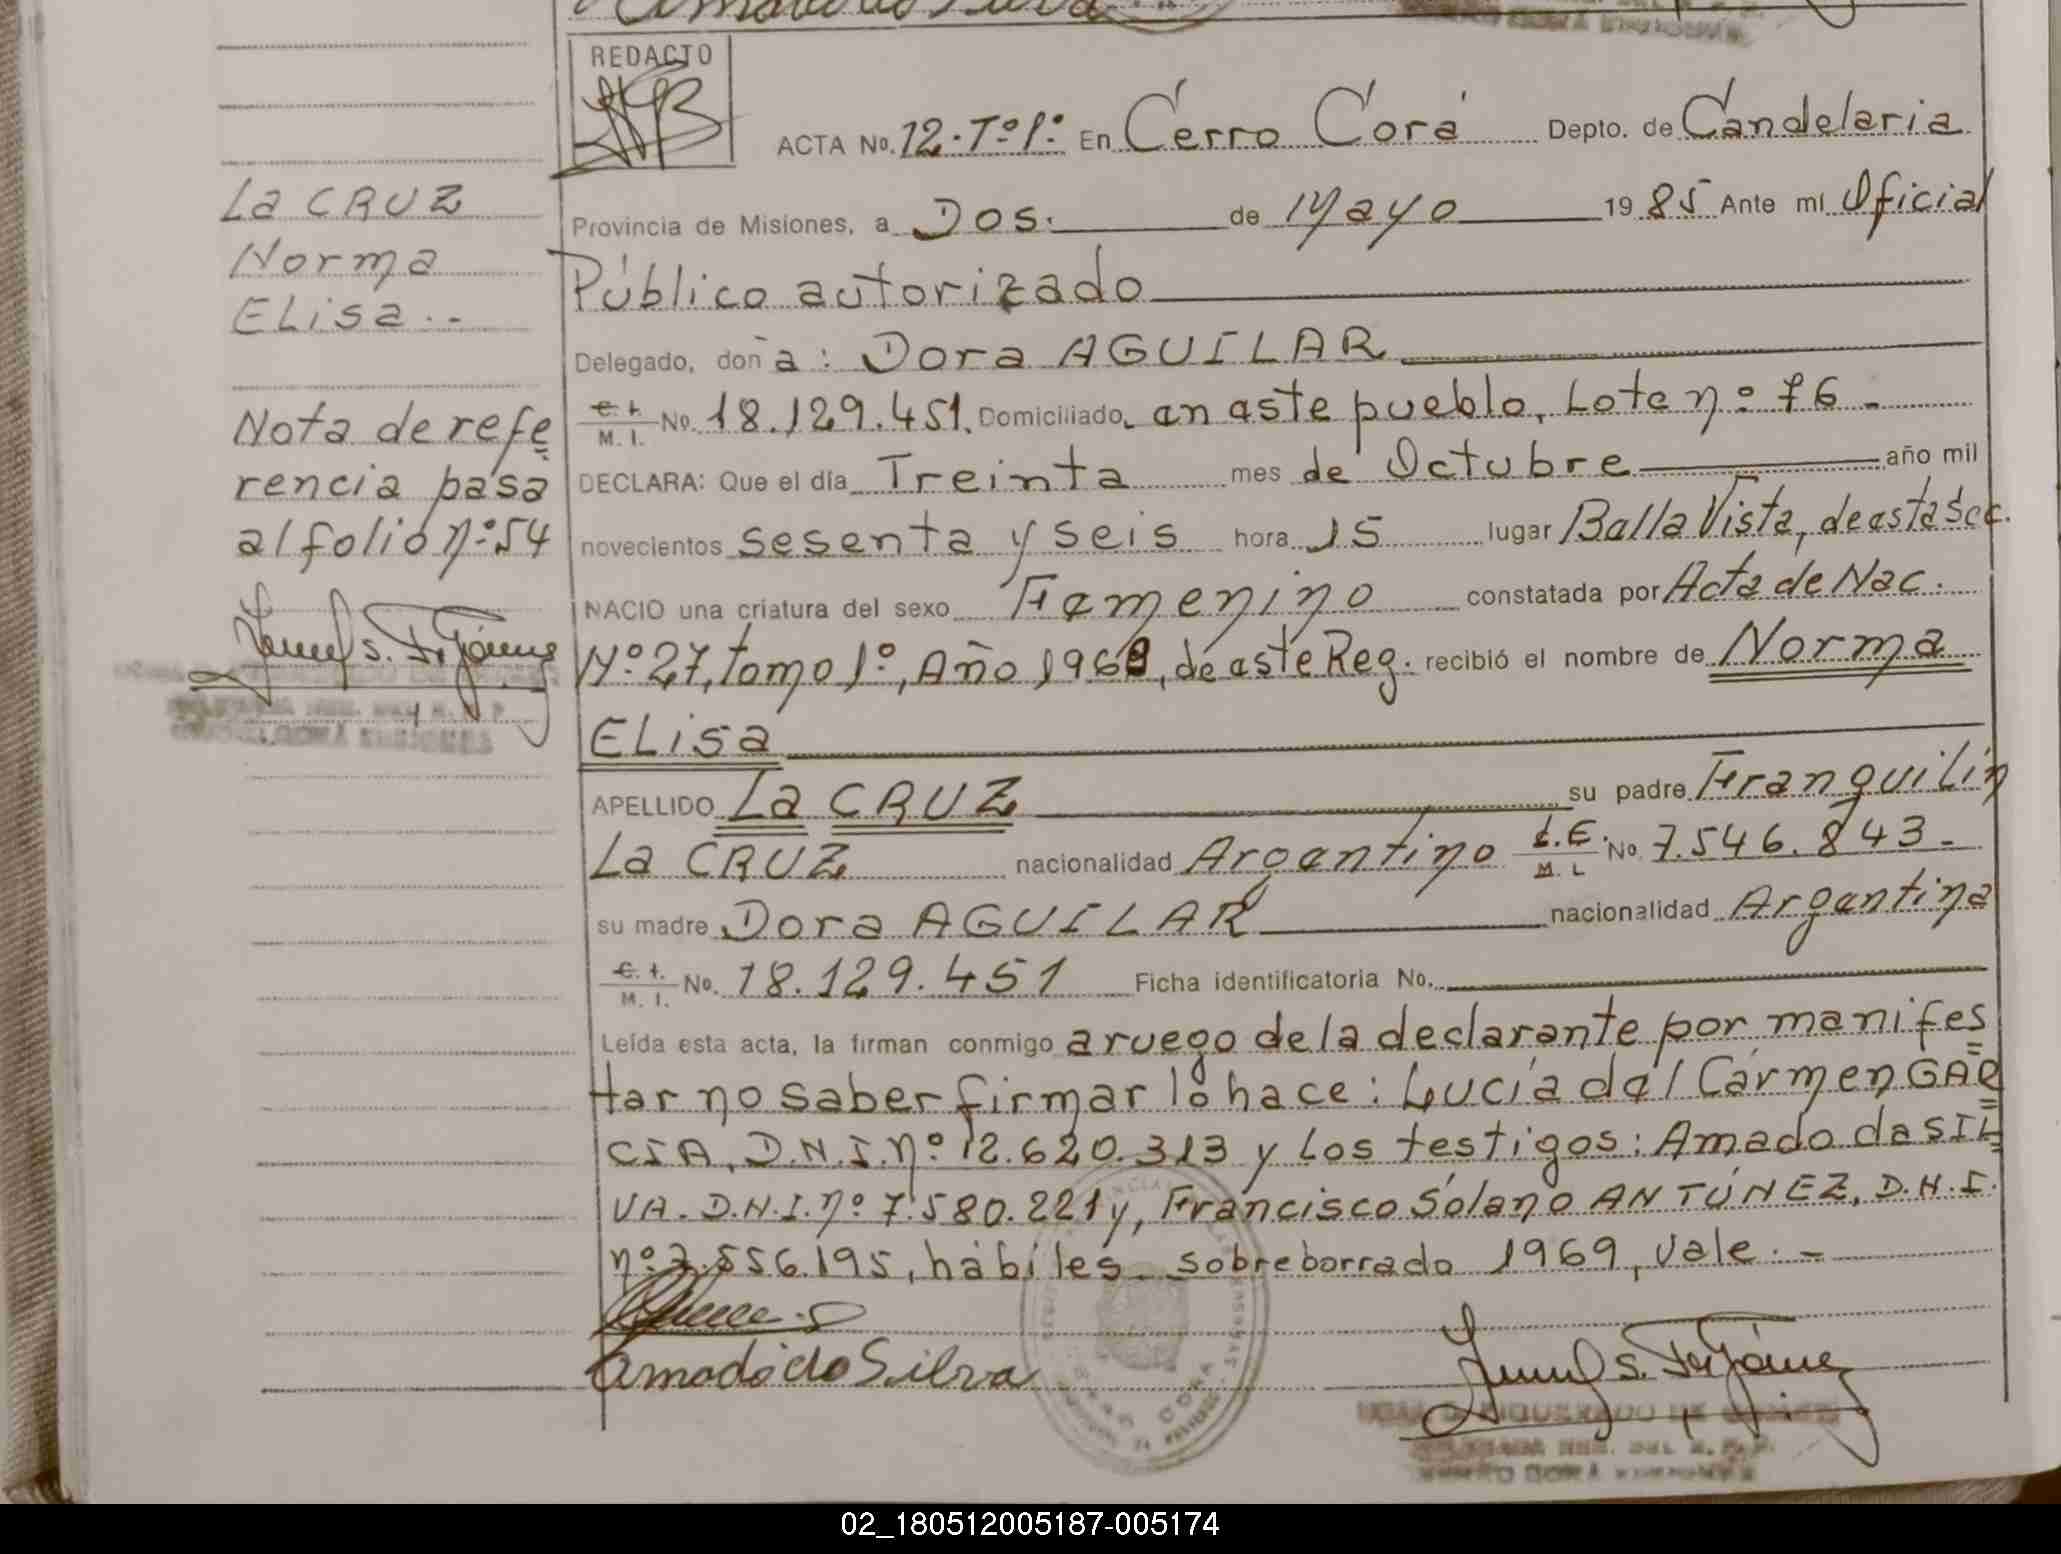 REDACTO
ACTA No. 12.Tº1º En Cerro Corá Depto. de Candelaria
Provincia de Misiones, a Dos. de Mayo 1985 Ante mí Oficial
Público autorizado
Delegado, doña: Dora AGUILAR
C.I. M.I. No. 18.129.451, Domiciliado, en este pueblo, Lote nº 76.-
DECLARA: Que el día Treinta mes de Octubre año mil
novecientos sesenta y seis hora 15 lugar Bella Vista, de esta Sec.
NACIO una criatura del sexo Femenino constatada por Acta de Nac.
Nº 27, tomo 1º, Año 1969, de este Reg. recibió el nombre de Norma
ELisa
APELLIDO La CRUZ su padre Franquilin
La CRUZ nacionalidad Argentino L.E. M.I. No. 7.546.843.-
su madre Dora AGUILAR nacionalidad Argentina
C.I. M.I. No. 18.129.451 Ficha identificatoria No.
Leída esta acta, la firman conmigo a ruego de la declarante por manifes
tar no saber firmar lo hace: Lucía del Cármen GAR
CIA, D.N.I. nº 12.620.313 y Los testigos: Amado da SIL
VA. D.N.I. nº 7.580.221 y, Francisco Solano ANTÚNEZ, D.N.I.
nº 7.556.195, hábiles. sobreborrado 1969, vale.-
Amado do Silva
La CRUZ
Norma
ELisa..-
Nota de refe
rencia pasa
al folio nº 54
02_180512005187-005174